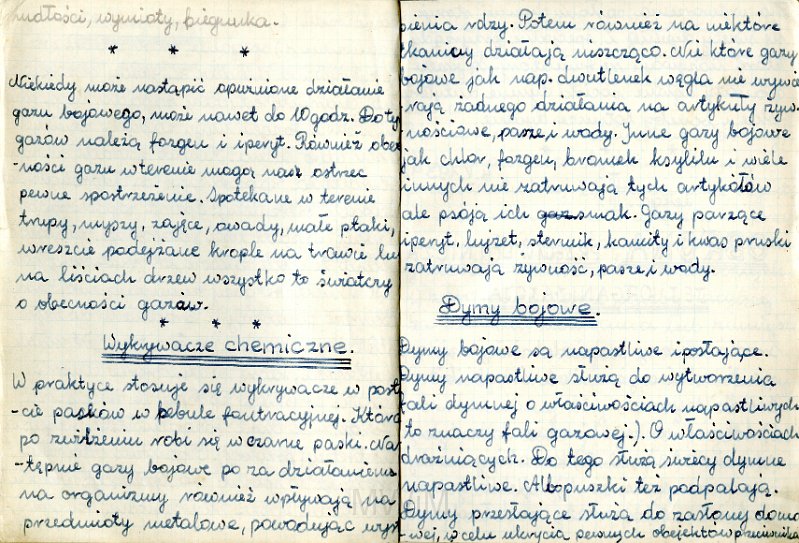 mdłości, wymioty, biegunka.
* * *
Niekiedy może nastąpić opuźnione działanie
gazu bojowego, może nawet do 10 godz. Do ty
gazów należą fozgen i iperyt. Również obec
-ności gazu w terenie mogą nasz ostrzec
pewne spostrzeżenie. Spotekane w terenie
trupy, myszy, zające, owady, małe ptaki,
wreszcie podejżane krople na trawie lu
na liściach drzew wszystko to światczy
o obecności gazów.
* * *
Wykrywacze chemiczne.
W praktyce stosuje się wykrywacze w post
-cie pasków w bebule fontracyjnej. Które
po zwilżeniu robi się w czarne paski. Na
-tępnie gazy bojowe po za działaniem
na organizmy również wpływają na
przedmioty metalowe, powodując wyst
pienia rdzy. Potem również na niektóre
tkanicy działają niszcząco. Nie które gazy
bojowe jak nap. dwutlenek węgla nie wywie
rają żadnego działania na artykuły żyw
-nościowe, pasze i wody. Inne gazy bojowe
jak chlor, fozgen, bromek ksylilu i wiele
innych nie zatruwają tych artykołów
ale psóją ich gaz smak. Gazy parzące
iperyt, lujzet, sternik, kamity i kwas pruski
zatruwają żywność, pasze i wody.
Dymy bojowe.
Dymy bojowe są napastliwe i posłające.
Dymy napastliwe służą do wytworzenia
fali dymnej o właściwościach napastliwych
to znaczy fali gazowej.). O właściwościach
drażniących. Do tego służą świecy dymne
napastliwe. Albo puszki też podpalają.
Dymy przesłające służą do zasłony dymo
-wej, w celu ukrycia pewnych obejektów przeciwnika